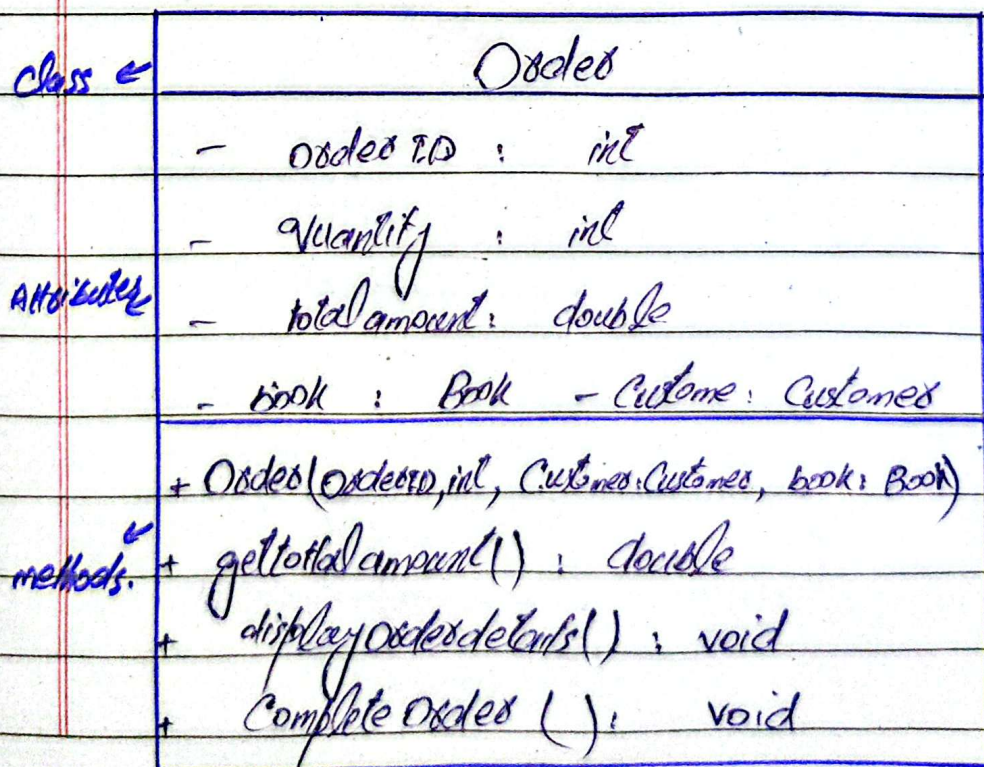 Class ← Order
- orderID : int
- Quantity : int
Attributes
- total amount : double
- book : Book - Custome : Customer
+ Order(OrderID, int, Customer:Customer, book: Book)
methods. ← + gettottalamount() : double
+ displayorderdetails() : void
+ Complete Order () : void